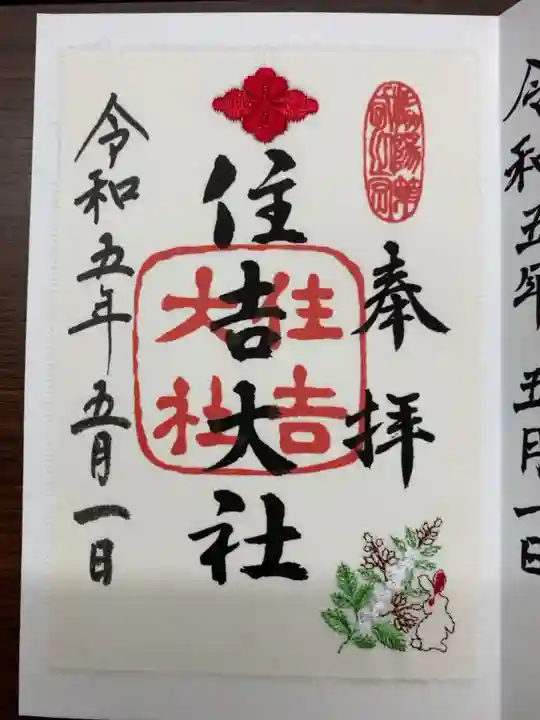 令和五年 五月一日
奉拝
住吉大社
住吉
大社
令和五年五月一日